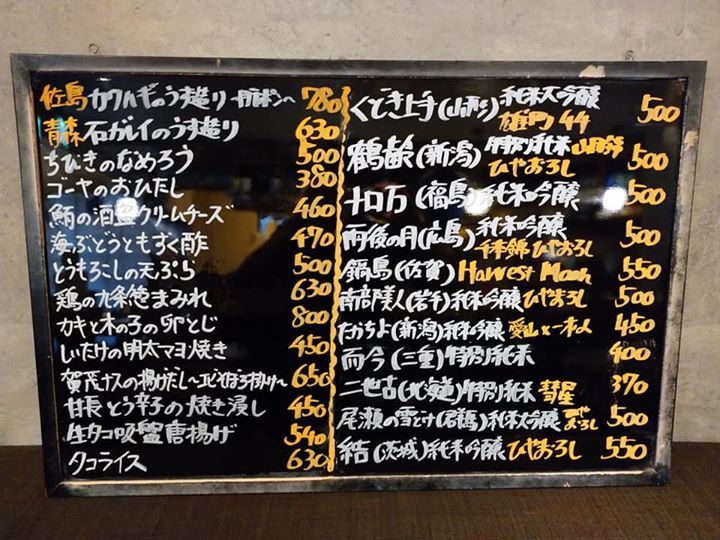 佐島 カワハギのうす造り ～肝ポン～ 780
青森 石ガレイのうす造り 630
ちびきのなめろう 500
ゴーヤのおひたし 380
鮪の酒盗クリームチーズ 460
海ぶどうともずく酢 470
とうもろこしの天ぷら 500
鶏の九条葱まみれ 630
カキと木の子の卵とじ 800
しいたけの明太マヨ焼き 450
賀茂ナスの揚げだし～エビそぼろ掛け～ 650
甘長とう辛子の焼き浸し 450
生タコ吸盤唐揚げ 540
タコライス 630
くどき上手(山形)純米大吟醸 雄町44 500
鶴齢(新潟)特別純米 山田錦 ひやおろし 500
十ロ万(福島)純米吟醸 500
雨後の月(広島)純米吟醸 千本錦 ひやおろし 500
鍋島(佐賀) Harvest Moon 550
南部美人(岩手)純米吟醸 ひやおろし 500
たかちよ(新潟)純米吟醸 愛山と一本〆 450
而今(三重)特別純米 400
二世古(北海道)特別純米 彗星 370
尾瀬の雪どけ(群馬)純米大吟醸 ひやおろし 500
結(茨城)純米吟醸 ひやおろし 550